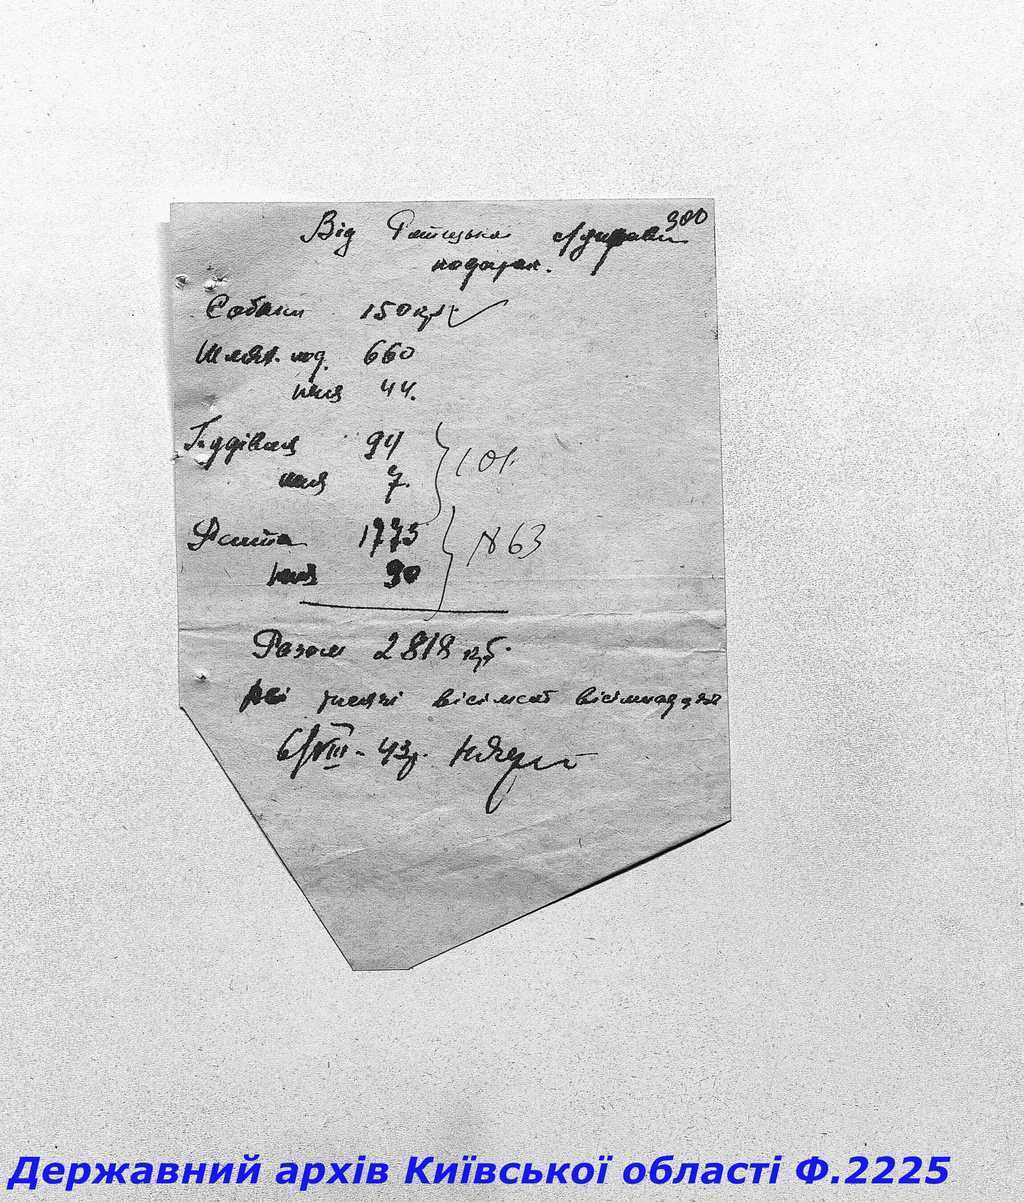 300
Від управи
податк.
Собаки 150 крб.
Шлях. под. 660
пеня 44.
Будівля 94
пеня 7. 101.
Рента 1773
пеня 90 1863
Разом 2818 крб.
дві тисячі вісімсот вісімнадцять
6/VIII - 43р.
Державний архів Київської області Ф.2225